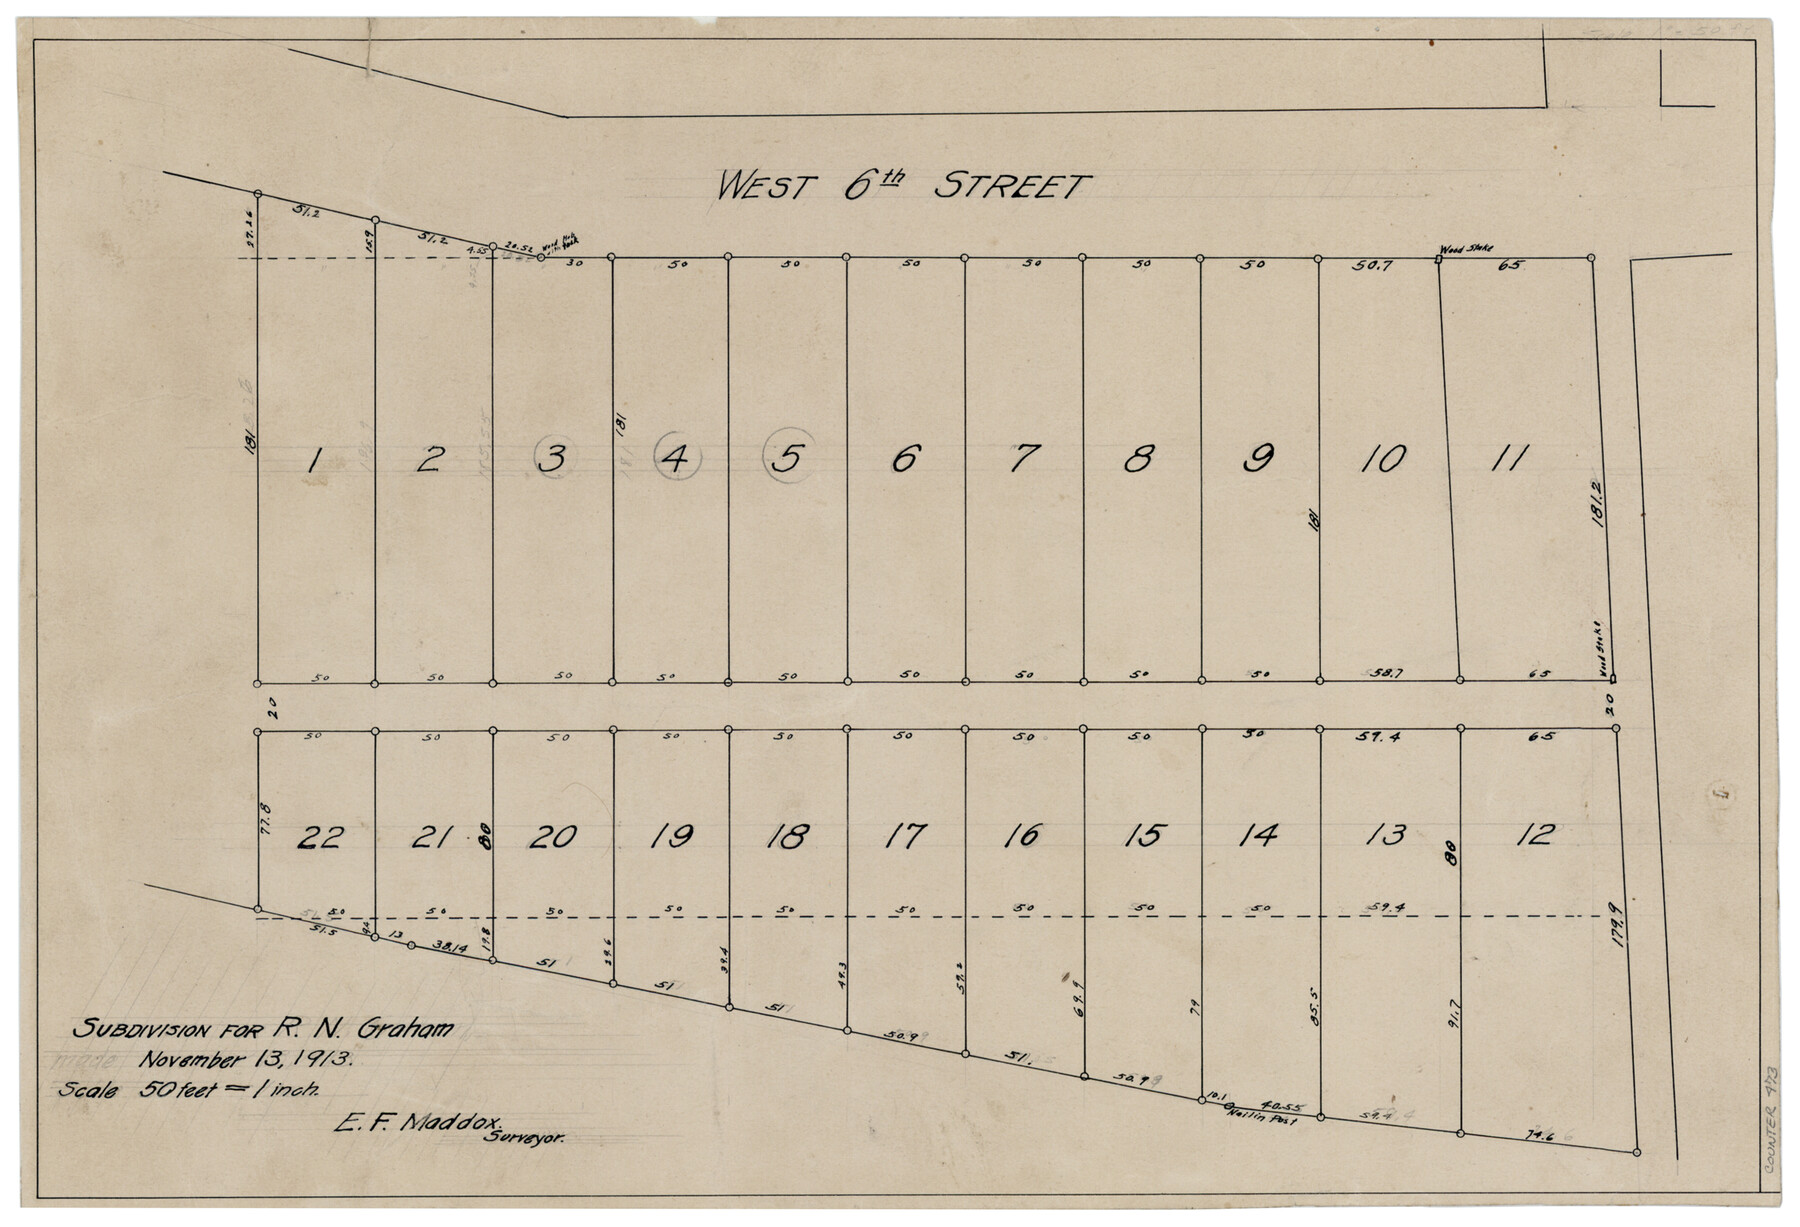 WEST 6th STREET
51.2
51.2
20.52
27.26
15.9
4.55
Wood Stake
30
50
50
50
50
50
50
50.7
65
181
181
181
181.2
1
2
3
4
5
6
7
8
9
10
11
Wood Stake
50
50
50
50
50
50
50
50
50
58.7
65
20
20
50
50
50
50
50
50
50
50
50
59.4
65
77.8
80
80
179.9
22
21
20
19
18
17
16
15
14
13
12
50
50
50
50
50
50
50
50
50
59.4
51.5
13
38.14
19.8
51
29.6
51
39.4
51
49.3
50.9
59.2
51.
69.9
50.9
79
10.1
40.55
Nail in Post
85.5
59.4
91.7
74.6
SUBDIVISION FOR R. N. Graham
made November 13, 1913.
Scale 50 feet = 1 inch.
E. F. Maddox.
Surveyor.
COUNTER 473